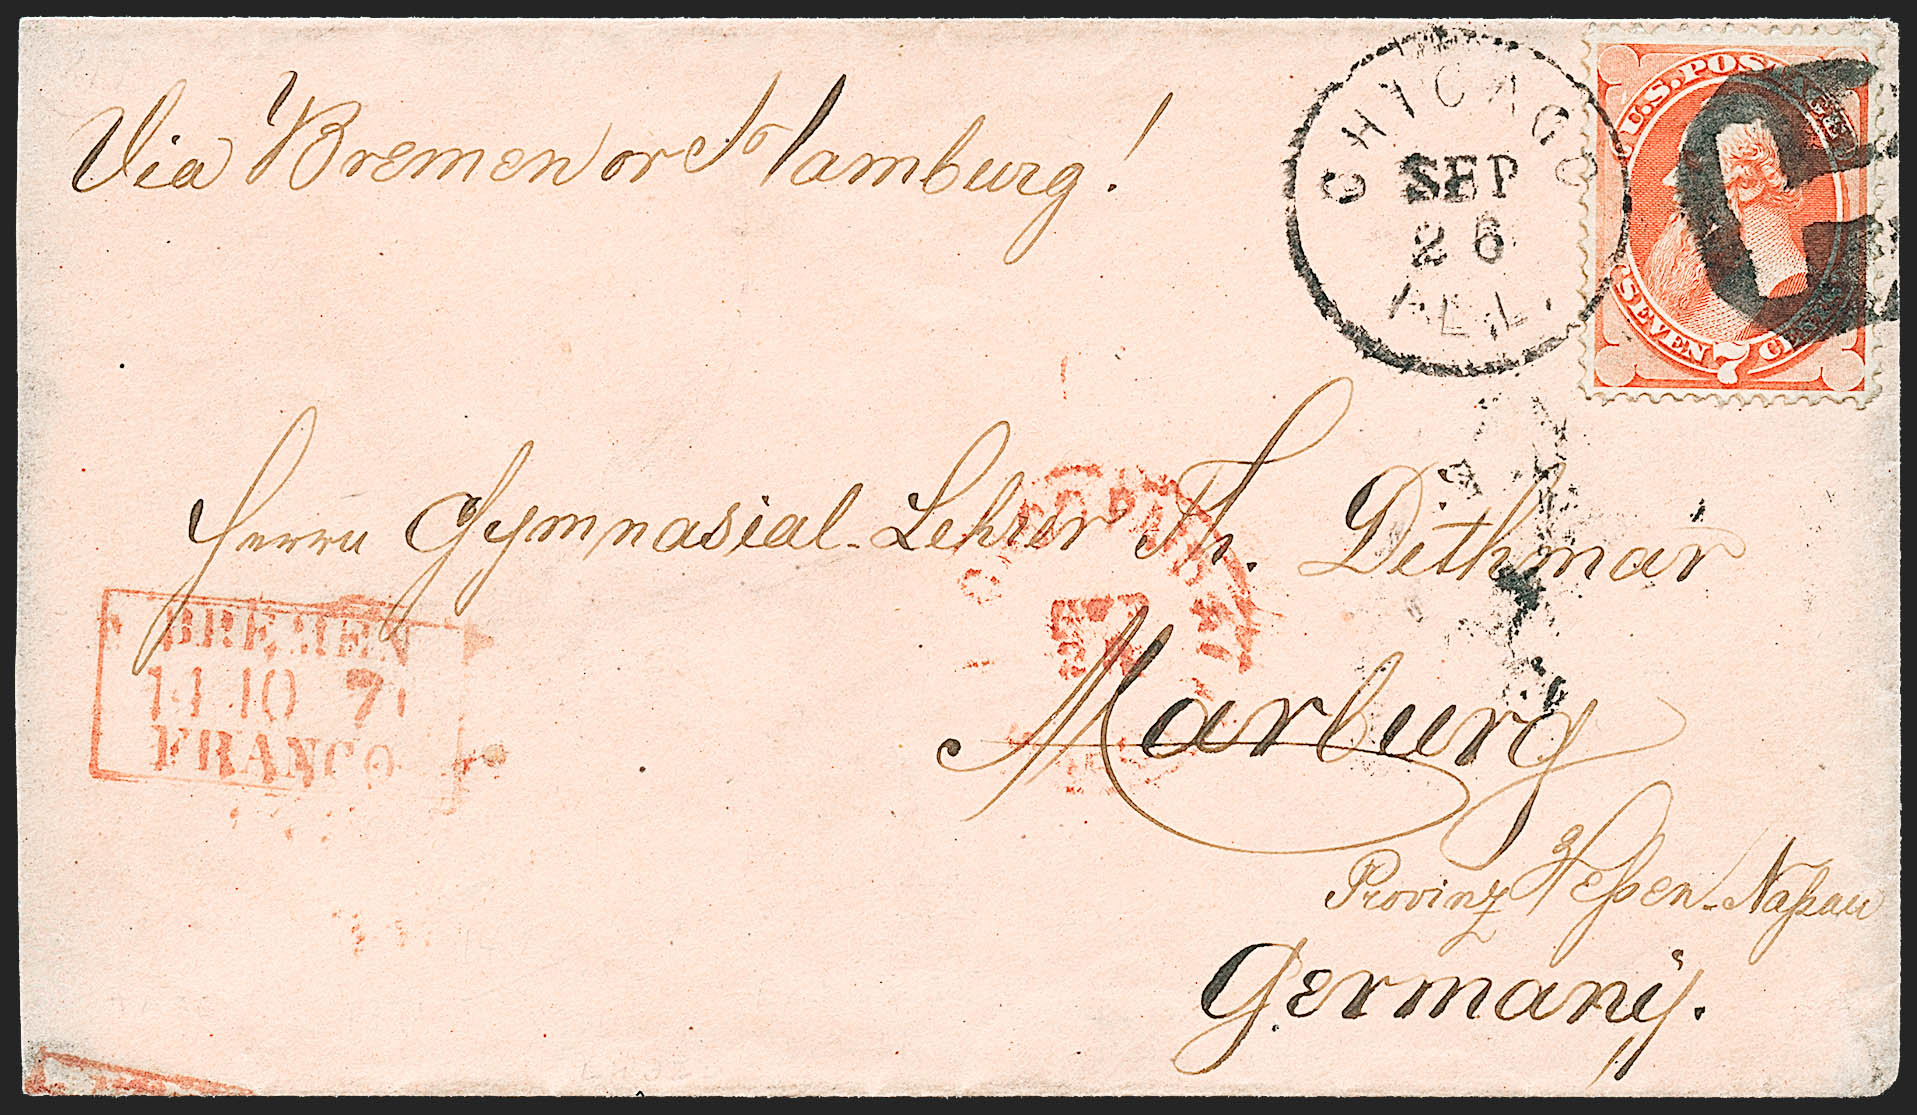 Via Bremen or Hamburg!
CHICAGO
SEP
26
ILL.
U.S. POSTAGE
SEVEN 7 CENTS
Herrn Gymnasial-Lehrer Th. Dithmar
Marburg
Provinz Heßen-Naßau
Germany.
BREMEN
14 10 71
FRANCO
PAID